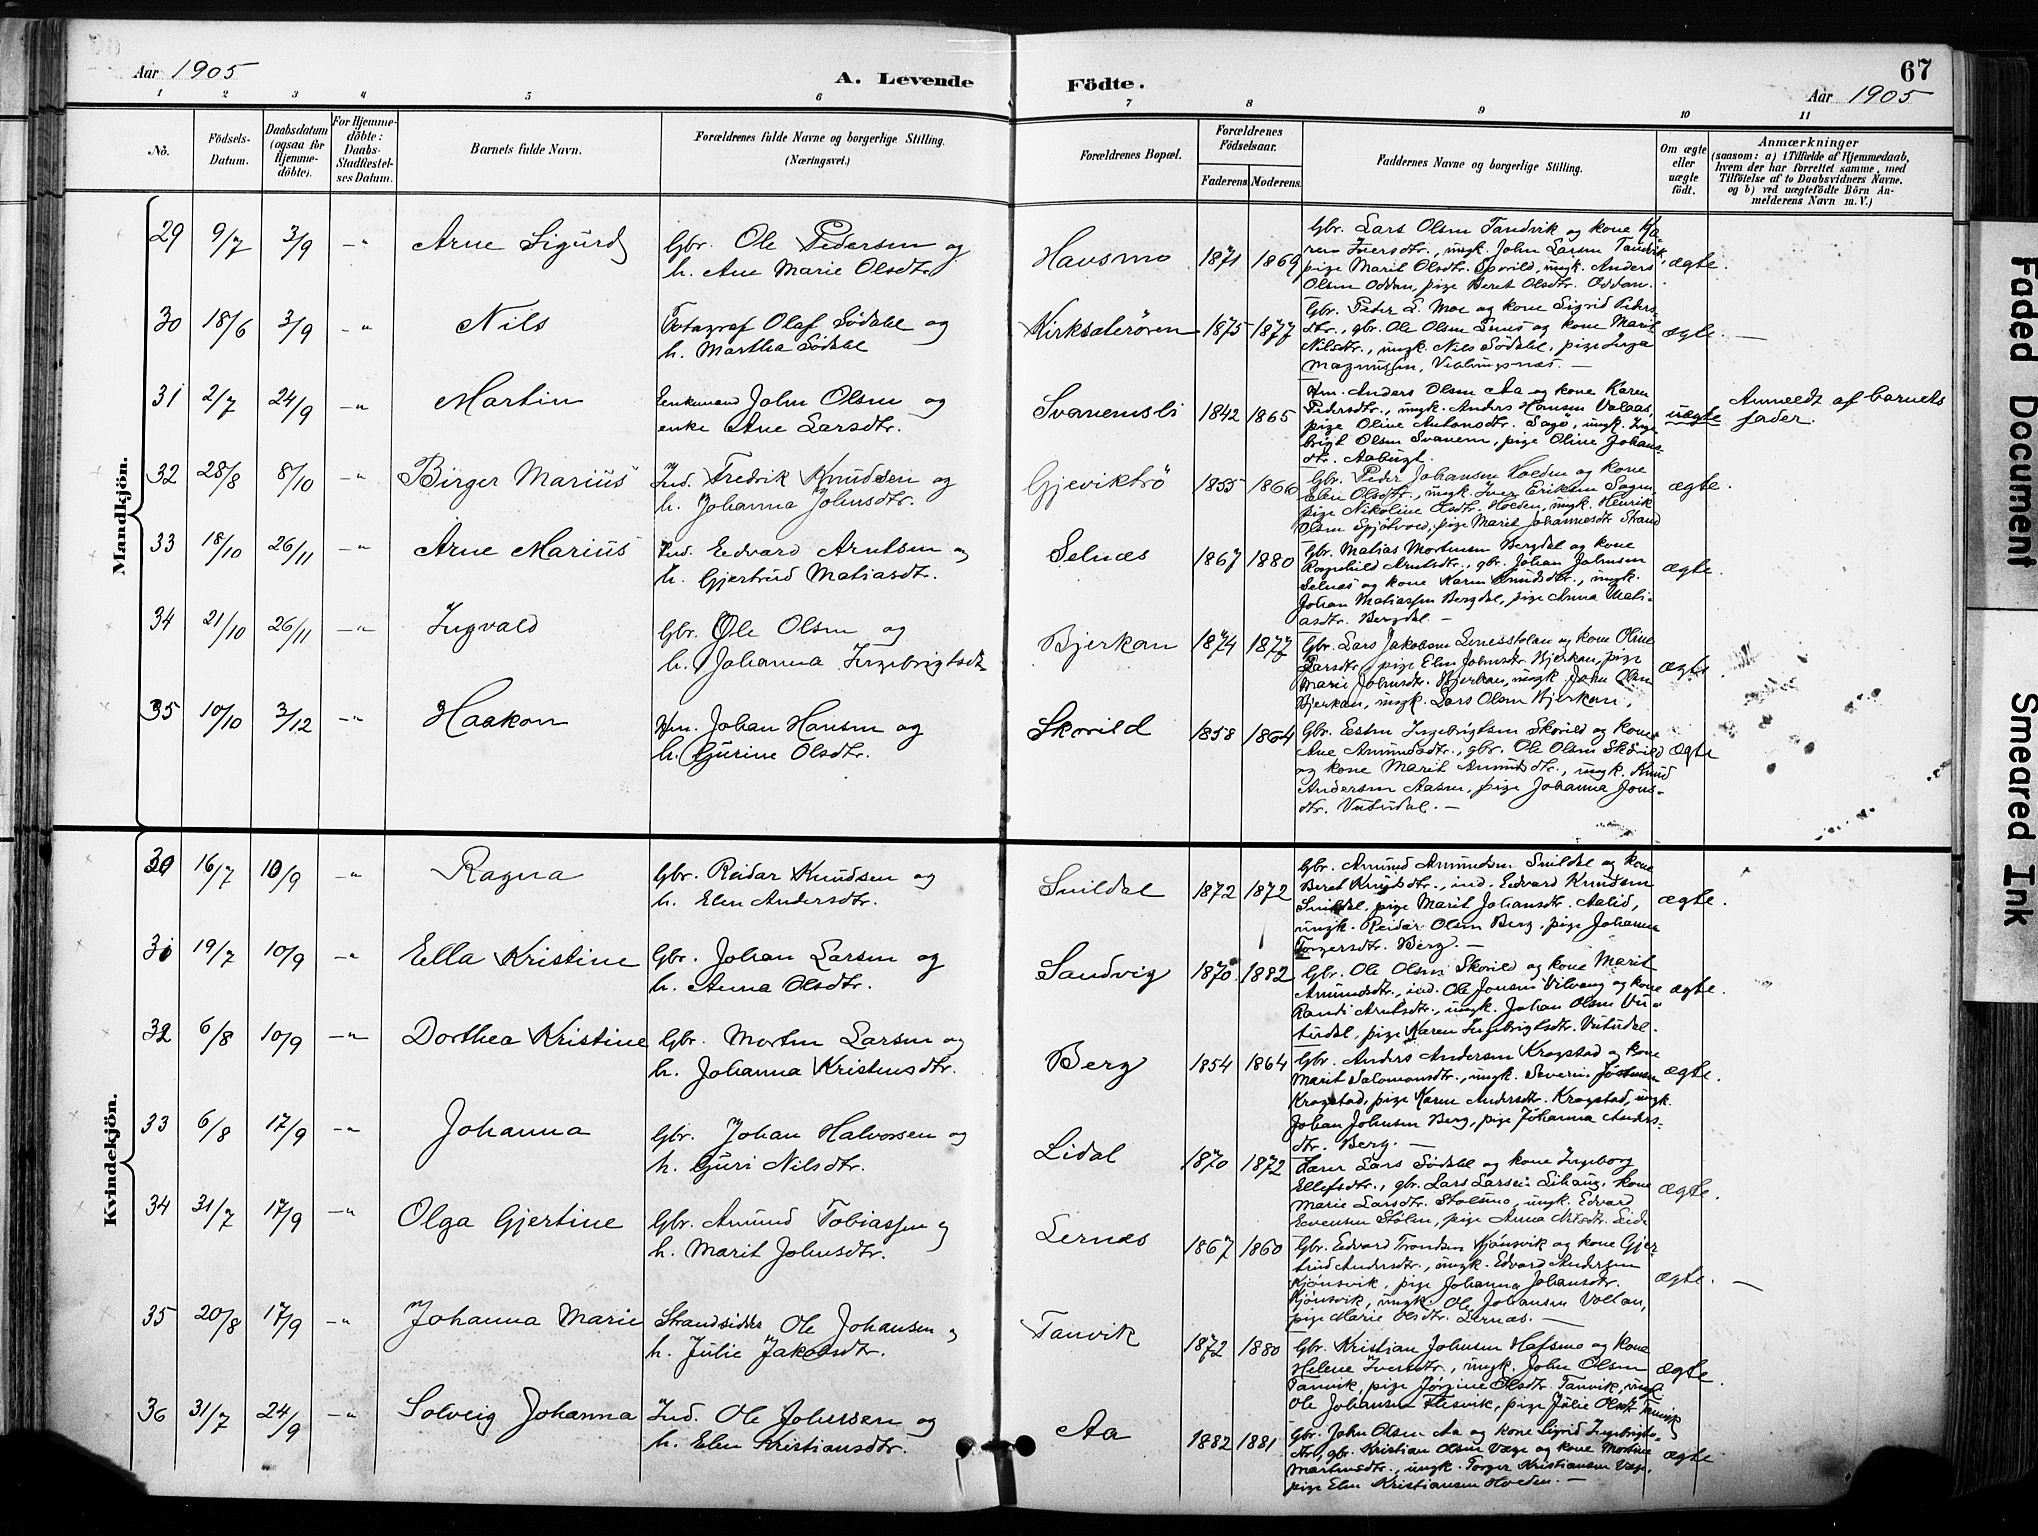 Aar 1905
A. Levende Födte.
67
Aar 1905
1 2 3 4 5 6 7 8 9 10 11
No.
Födsels-Datum.
Daabsdatum (ogsaa for Hjemme-döbte).
For Hjemme-döbte: Daabs-Stadfæstel-ses Datum.
Barnets fulde Navn.
Forældrenes fulde Navne og borgerlige Stilling. (Næringsvei.)
Forældrenes Bopæl.
Forældrenes Födselsaar.
Faderens. Moderens.
Faddernes Navne og borgerlige Stilling.
Om ægte eller uægte födt.
Anmærkninger
(saasom: a) i Tilfælde af Hjemmedaab,
hvem der har forrettet samme, med
Tilföielse af to Daabsvidners Navne,
og b) ved uægtefödte Börn An-
melderens Navn m.V.)
Mandkjön.
29 9/7 3/9 -"- Arne Sigurd
Gbr. Ole Pedersen og
h. Ane Marie Olsdtr.
Havsmo 1871 1869
Gbr. Lars Olsen Tandvik og kone Ka-
ren Iversdtr., ungk. John Larsen Tandvik,
pige Marit Olsdtr. Sporild, ungk. Anders
Olsen Oddan, pige Beret Olsdtr. Oddan.
ægte.
30 18/6 3/9 -"- Nils
Fotograf Olaf Södahl og
h. Martha Södahl
Kirksæterören 1875 1877
Gbr. Peder L. Moe og kone Sigrid Peders-
dtr., gbr. Ole Olsen Snus og kone Marit
Nilsdtr., ungk. Nils Södahl, pige Inga
Magnussen,
ægte.
31 2/7 24/9 -"- Martin
Enkemand John Olsen og
enke Ane Larsdtr.
Svanemsli 1842 1865
Hm. Anders Olsen Aa og kone Karen
Pedersdtr., ungk. Anders Hansen Valaas,
pige Oline Antonsdtr. Sagö, ungk. Inge-
brigt Olsen Svanem, pige Oline Johans-
dtr.
uægte
Anmeldt af barnets
fader.
32 28/8 8/10 -"- Birger Marius
Ind. Fredrik Knudsen og
h. Johanna Johnsdtr.
Gjeviktrö 1855 1866
Gbr. Peder Johansen Hoeden og kone
Elen Olsdtr., ungk. Iver Eriksen Sagen,
pige Nikoline Olsdtr. Hoeden, ungk. Henrik
Olsen Spjötvold, pige Marit Johannesdtr Strand
ægte.
33 18/10 26/11 -"- Arne Marius
Ind. Edvard Arntsen og
h. Gjertrud Matiasdtr.
Selnæs 1867 1880
Gbr. Matias Mortensen Bergdal og kone
Ragnhild Arntsdtr., gbr. Johan Johnsen
Selnæs og kone Karen Knudsdtr., ungk.
Johan Matiassen Bergdal, pige Anna Mati-
asdtr. Bergdal. —
ægte.
34 21/10 26/11 -"- Ingvald
Gbr. Ole Olsen og
h. Johanna Ingebrigtsdtr
Bjerkan 1874 1877
Gbr. Lars Jakobsen Lenesstölan og kone Oline
Larsdtr., pige Elen Johnsdtr. Bjerkan, pige
Marie Johnsdtr. Bjerkan, ungk. John Olsen
Bjerkan, ungk. Lars Olsen Bjerkan.
ægte
35 10/10 3/12 -"- Haakon
Hm. Johan Hansen og
h. Gurine Olsdtr.
Skorild 1858 1864
Gbr. Esten Ingebrigtsen Skorild og kone
Ane Amundsdtr., gbr. Ole Olsen Skorild
og kone Marit Amundsdtr., ungk. Knud
Andersen Aasen, pige Johanna Jons-
dtr. Vutudal. —
ægte
Kvindekjön.
30 16/7 10/9 -"- Ragna
Gbr. Reidar Knudsen og
h. Elen Andersdtr.
Snildal 1872 1872
Gbr. Amund Amundsen Snildal og kone
Beret Knutsdtr., ind. Edvard Knudsen
Snildal, pige Marit Johansdtr. Aalid,
ungk. Reidar Olsen Berg, pige Johanna
Torgersdtr. Berg. —
ægte.
31 19/7 10/9 -"- Ella Kristine
Gbr. Johan Larsen og
h. Anna Olsdtr.
Sandvig 1870 1882
Gbr. Ole Olsen Skorild og kone Marit
Amundsdtr., ind. Ole Jonsen Vilvang og kone
Randi Arntsdtr., ungk. Johan Olsen Vu-
tudal, pige Karen Ingebrigtsdtr. Vutudal.
ægte.
32 6/8 10/9 -"- Dorthea Kristine
Gbr. Morten Larsen og
h. Johanna Kristensdtr.
Berg 1854 1864
Gbr. Anders Andersen Krogstad og kone
Marit Salomonsdtr., ungk. Severin Jostensen
Krogstad, pige Karen Andersdtr. Krogstad, ungk.
Johan Johnsen Berg, pige Johanna Anders-
dtr. Berg. —
ægte.
33 6/8 17/9 -"- Johanna
Gbr. Johan Halvorsen og
h. Guri Nilsdtr.
Lidal 1870 1872
Lærer Lars Södahl og kone Ingeborg
Ellefsdtr., gbr. Lars Larsen Lihaug, kone
Marie Larsdtr. Stölsmo, ungk. Edvard
Evensen Stölen, pige Anna Nilsdtr. Lidal
ægte.
34 31/7 17/9 -"- Olga Gjertine
Gbr. Amund Tobiassen og
h. Marit Johnsdtr.
Lernæs 1867 1860
Gbr. Edvard Trondsen Kjönsvik og kone Gjer-
trud Andersdtr., ungk. Edvard Andersen
Kjönsvik, pige Johanna Johansdtr.
Kjönsvik, ungk. Ole Johansen Voltan,
pige Marie Olsdtr. Lernæs. —
ægte. —
35 20/8 17/9 -"- Johanna Marie
Strandsidder Ole Johansen og
h. Julie Jakobsdtr.
Tanvik 1872 1880
Gbr. Kristian Johnsen Hafsmo og kone
Helene Iversdtr., ungk. John Olsen
Tanvik, pige Jörgine Olsdtr. Tanvik, ungk
Ole Johansen Flesvik, pige Julie Olsdtr Tanvik
ægte.
36 31/7 24/9 -"- Solveig Johanna
Ind. Ole Johnsen og
h. Elen Kristiansdtr.
Aa 1882 1881
Gbr. John Olsen Aa og kone Sigrid Ingebrigts-
dtr., gbr. Kristian Olsen Vage og kone Martine
Martinusdtr., ungk. Torger Kristiansen Vage,
pige Elen Kristiansen Hoeden. —
ægte
Faded Document
Smeared Ink